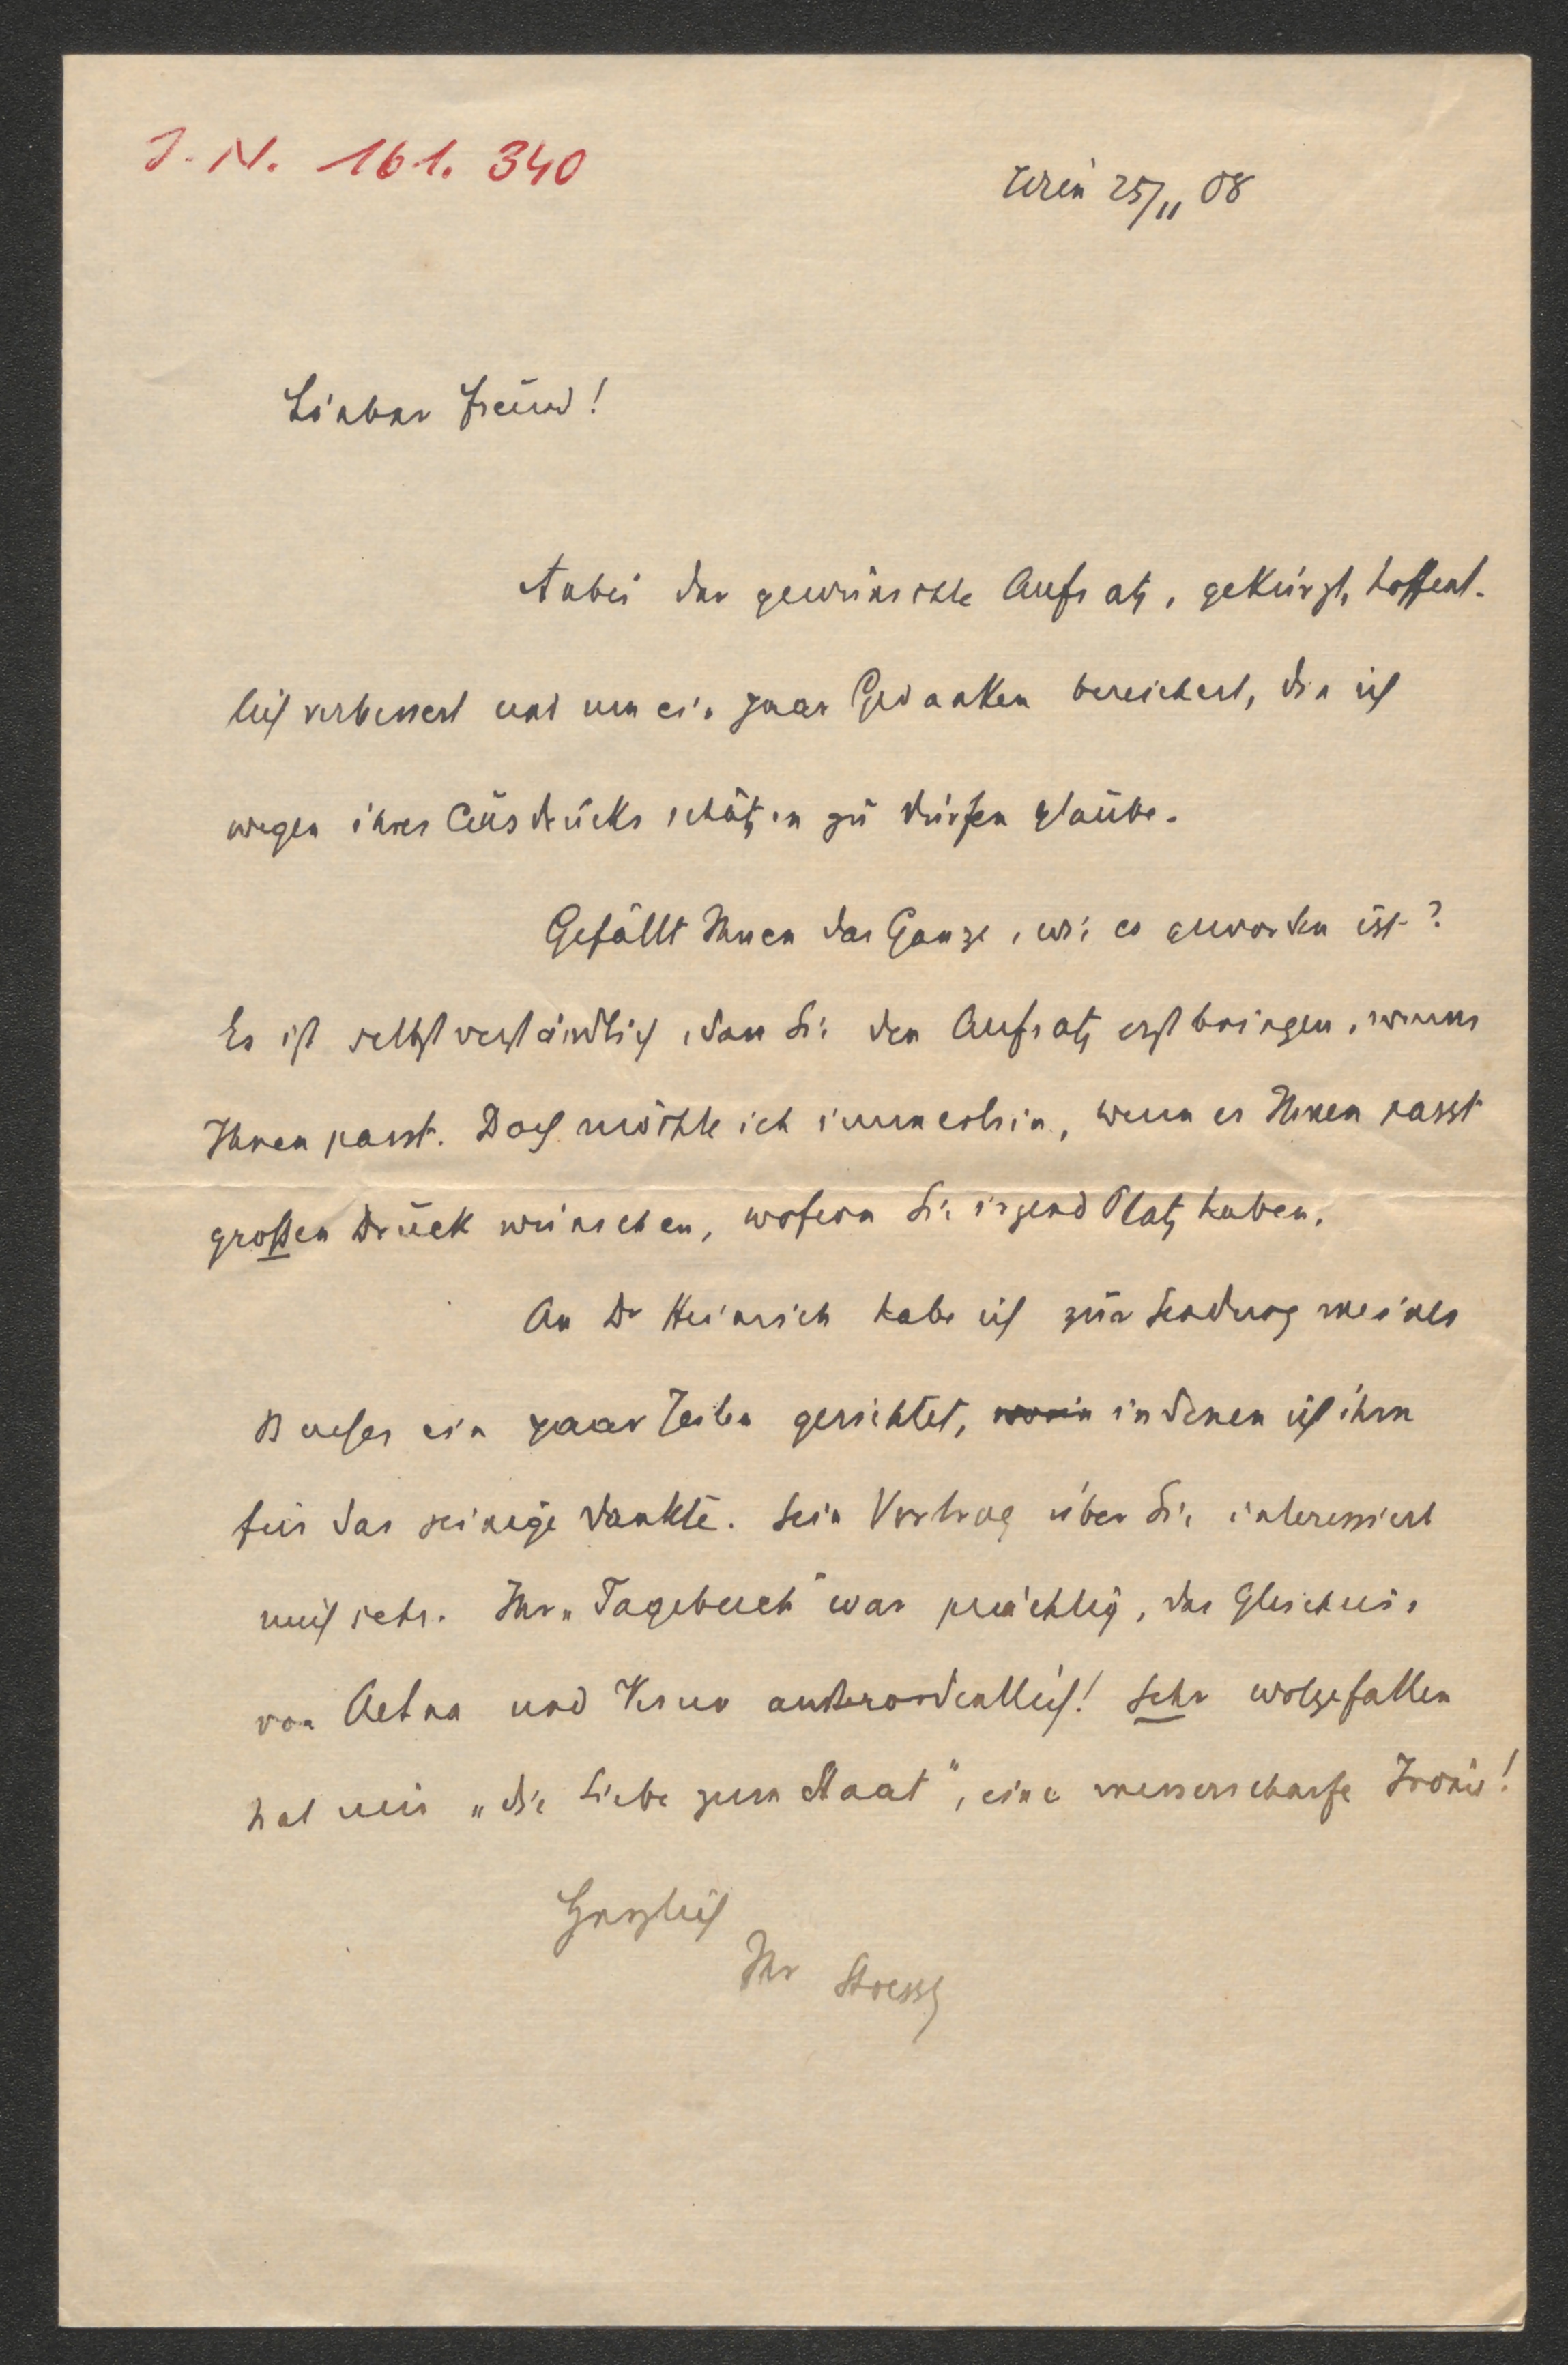 J. N. 161. 340
Wien 25/11 08
Lieber Freund!
Anbei der gewünschte Aufsatz, gekürzt, hoffent-
lich verbessert und um ein paar Gedanken bereichert, die ich
wegen ihres Ausdrucks schätzen zu dürfen glaube.
Gefällt Ihnen das Ganze, wie es geworden ist?
Es ist selbstverständlich, dass Sie den Aufsatz erst bringen, wenns
Ihnen passt. Doch möchte ich immerhin, wenn es Ihnen passt
großen Druck wünschen, wofern Sie irgend Platz haben.
An Dr Heinrich habe ich zur Sendung meines
Buches ein paar Zeilen gerichtet, worin in denen ich ihm
für das seinige dankte. Sein Vortrag über Sie interessiert
mich sehr. Ihr „Tagebuch" war prächtig, das Gleichnis
von Aetna und Vesuv außerordentlich! Sehr wolgefallen
hat mir „die Liebe zum Staat", eine messerscharfe Ironie!
Herzlich
Ihr Stoessl